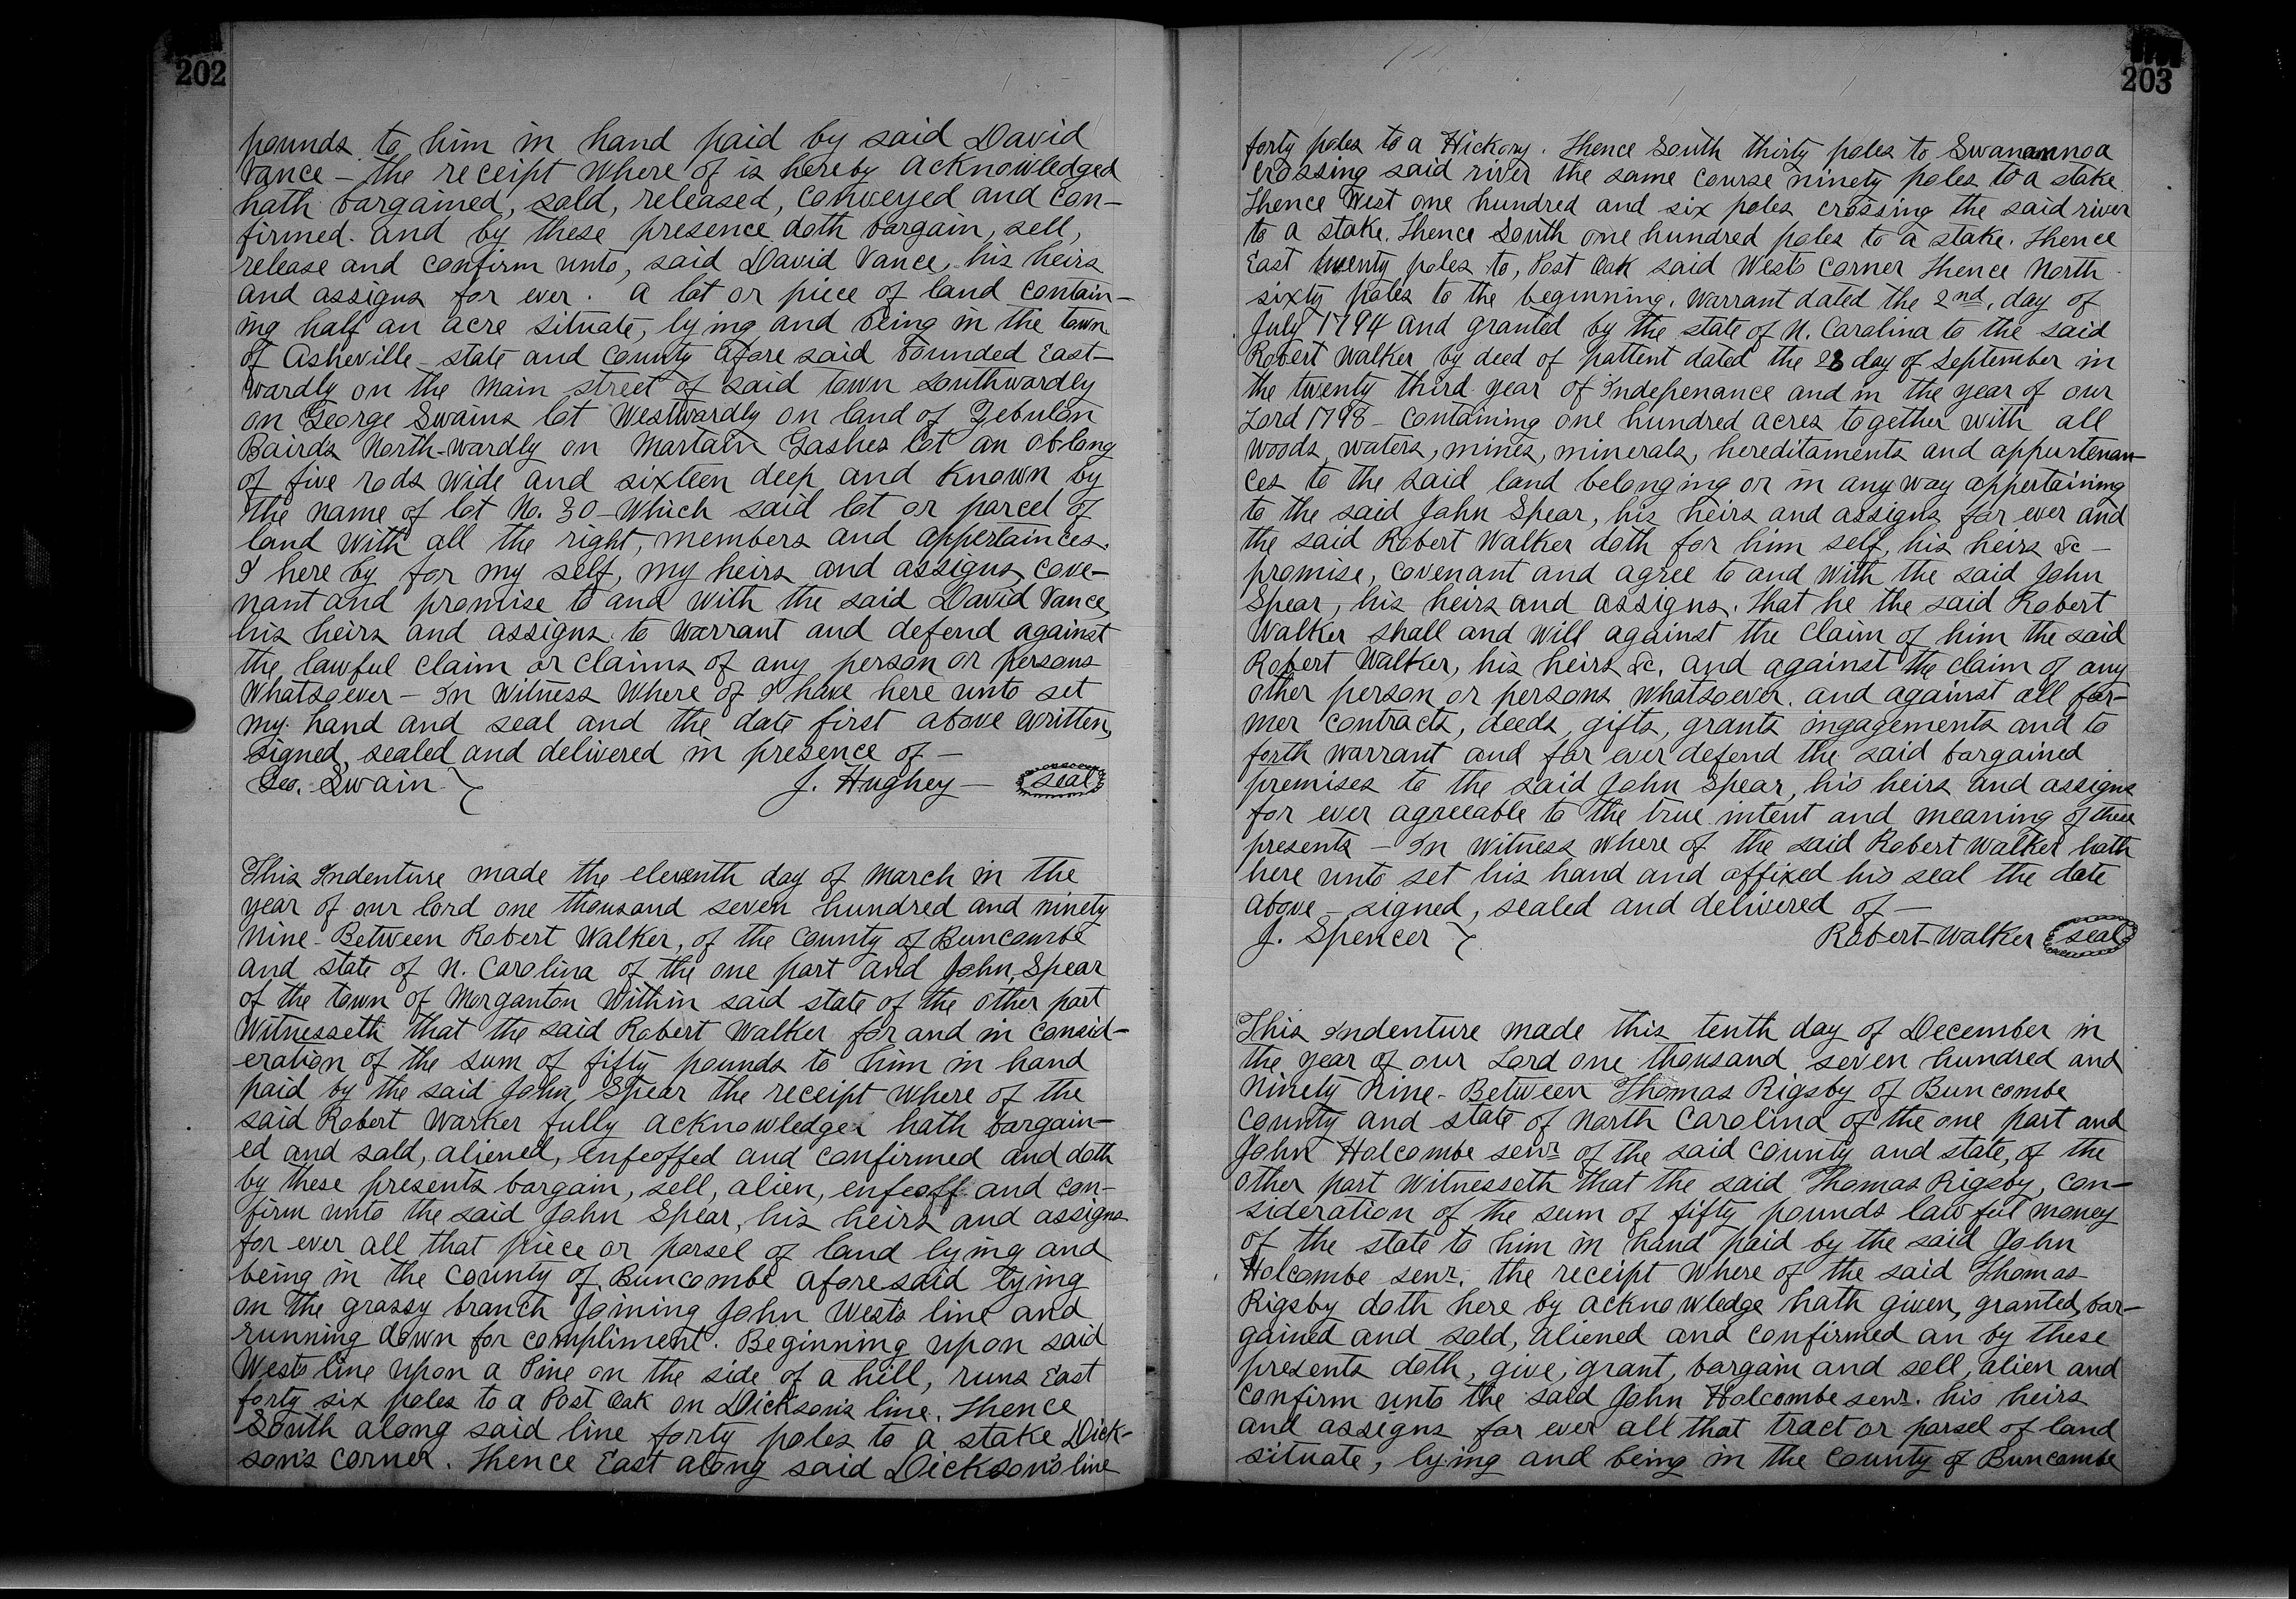 202
pounds to him in hand paid by said David
Vance – the receipt where of is hereby acknowledged
hath bargained, sold, released, conveyed and con-
firmed. and by these presence doth bargain, sell,
release and confirm unto, said David Vance, his heirs
and assigns for ever. a lot or piece of land contain-
ing half an acre situate, lying and being in the town
of Asheville – state and county afore said bounded East-
wardly on the main street of said town southwardly
on George Swains lot Westwardly on land of Zebulon
Bairds North-wardly on Martain Gashes lot an oblong
of five rods wide and sixteen deep and known by
the name of lot No. 30 – Which said lot or parcel of
land with all the right, members and appertainces.
I here by for my self, my heirs and assigns, cove-
nant and promise to and with the said David Vance,
his heirs and assigns to warrant and defend against
the lawful claim or claims of any person or persons
whatsoever – In witness where of I have here unto set
my hand and seal and the date first above written,
signed, sealed and delivered in presence of –
Geo. Swain } J. Hughey – seal
This Indenture made the eleventh day of March in the
year of our lord one thousand seven hundred and ninety
nine – Between Robert Walker, of the county of Buncombe
and state of N. Carolina of the one part and John, Spear
of the town of Morganton within said state of the other part
witnesseth that the said Robert Walker for and in consid-
eration of the sum of fifty pounds to him in hand
paid by the said John, Spear the receipt where of the
said Robert Warker fully acknowledges hath bargain-
ed and sold, aliened, enfeoffed and confirmed and doth
by these presents bargain, sell, alien, enfeoff and con-
firm unto the said John Spear, his heirs and assigns
for ever all that piece or parsel of land lying and
being in the county of Buncombe aforesaid lying
on the grassy branch Joining John Wests line and
running down for compliment. Beginning upon said
Wests line upon a Pine on the side of a hill, runs East
forty six poles to a Post Oak on Dickson's line. Thence
South along said line forty poles to a stake Dick-
son's corner. Thence East along said Dickson's line
203
forty poles to a Hickory. Thence South thirty poles to Swanannoa
crossing said river the same course ninety poles to a stake
Thence West one hundred and six poles crossing the said river
to a stake. Thence South one hundred poles to a stake. Thence
East twenty poles to, Post Oak said Wests corner Thence North
sixty poles to the beginning. Warrant dated the 2nd. day of
July 1794 and granted by the state of N. Carolina to the said
Robert Walker by deed of pattent dated the 28 day of September in
the twenty third year of Indepenance and in the year of our
Lord 1798 – containing one hundred acres together with all
woods, waters, mines, minerals, hereditaments and appurtenan-
ces to the said land belonging or in any way appertaining
to the said John Spear, his heirs and assigns for ever and
the said Robert Walker doth for him self, his heirs &c –
promise, covenant and agree to and with the said John
Spear, his heirs and assigns. That he the said Robert
Walker shall and will against the claim of him the said
Robert Walker, his heirs &c. and against the claim of any
other person or persons whatsoever. and against all for-
mer contracts, deeds, gifts, grants ingagements and to
forth warrant and for ever defend the said bargained
premises to the said John Spear, his heirs and assigns
for ever agreeable to the true intent and meaning of these
presents – In witness where of the said Robert Walker hath
here unto set his hand and affixed his seal the date
above – signed, sealed and delivered of –
J. Spencer } Robert Walker seal
This Indenture made this tenth day of December in
the year of our Lord one thousand seven hundred and
Ninety Nine – Between Thomas Rigsby of Buncombe
county and state of North Carolina of the one part and
John Holcombe senr. of the said county and state, of the
other part witnesseth that the said Thomas Rigsby, con-
sideration of the sum of fifty pounds lawful money
of the state to him in hand paid by the said John
Holcombe senr. the receipt where of the said Thomas
Rigsby doth here by acknowledge hath given, granted, bar-
gained and sold, aliened and confirmed an by these
presents doth, give, grant, bargain and sell, alien and
confirm unto the said John Holcombe senr. his heirs
and assigns for ever all that tract or parsel of land
situate, lying and being in the county of Buncombe